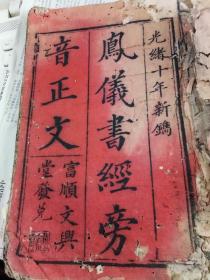 光緒十年新鐫
鳳儀書經旁
音正文
富順文興
堂發兌